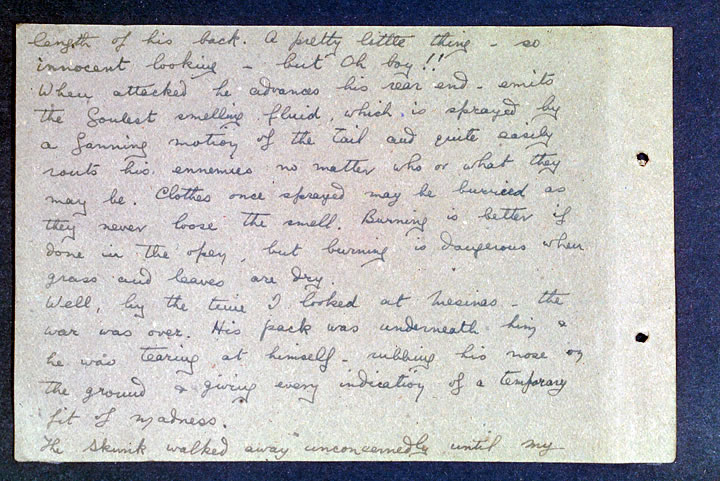 length of his back. A pretty little thing - so
innocent looking - but Oh boy!!
When attacked he advances his rear end - emits
the foulest smelling fluid, which is sprayed by
a fanning motion of the tail and quite easily
routs his ennemies no matter who or what they
may be. Clothes once sprayed may be burried as
they never loose the smell. Burning is better if
done in the open, but burning is dangerous when
grass and leaves are dry.
Well, by the time I looked at Mesinas - the
war was over. His pack was underneath him &
he was tearing at himself - rubbing his nose on
the ground & giving every indication of a temporary
fit of madness.
The skunk walked away unconcernedly until my